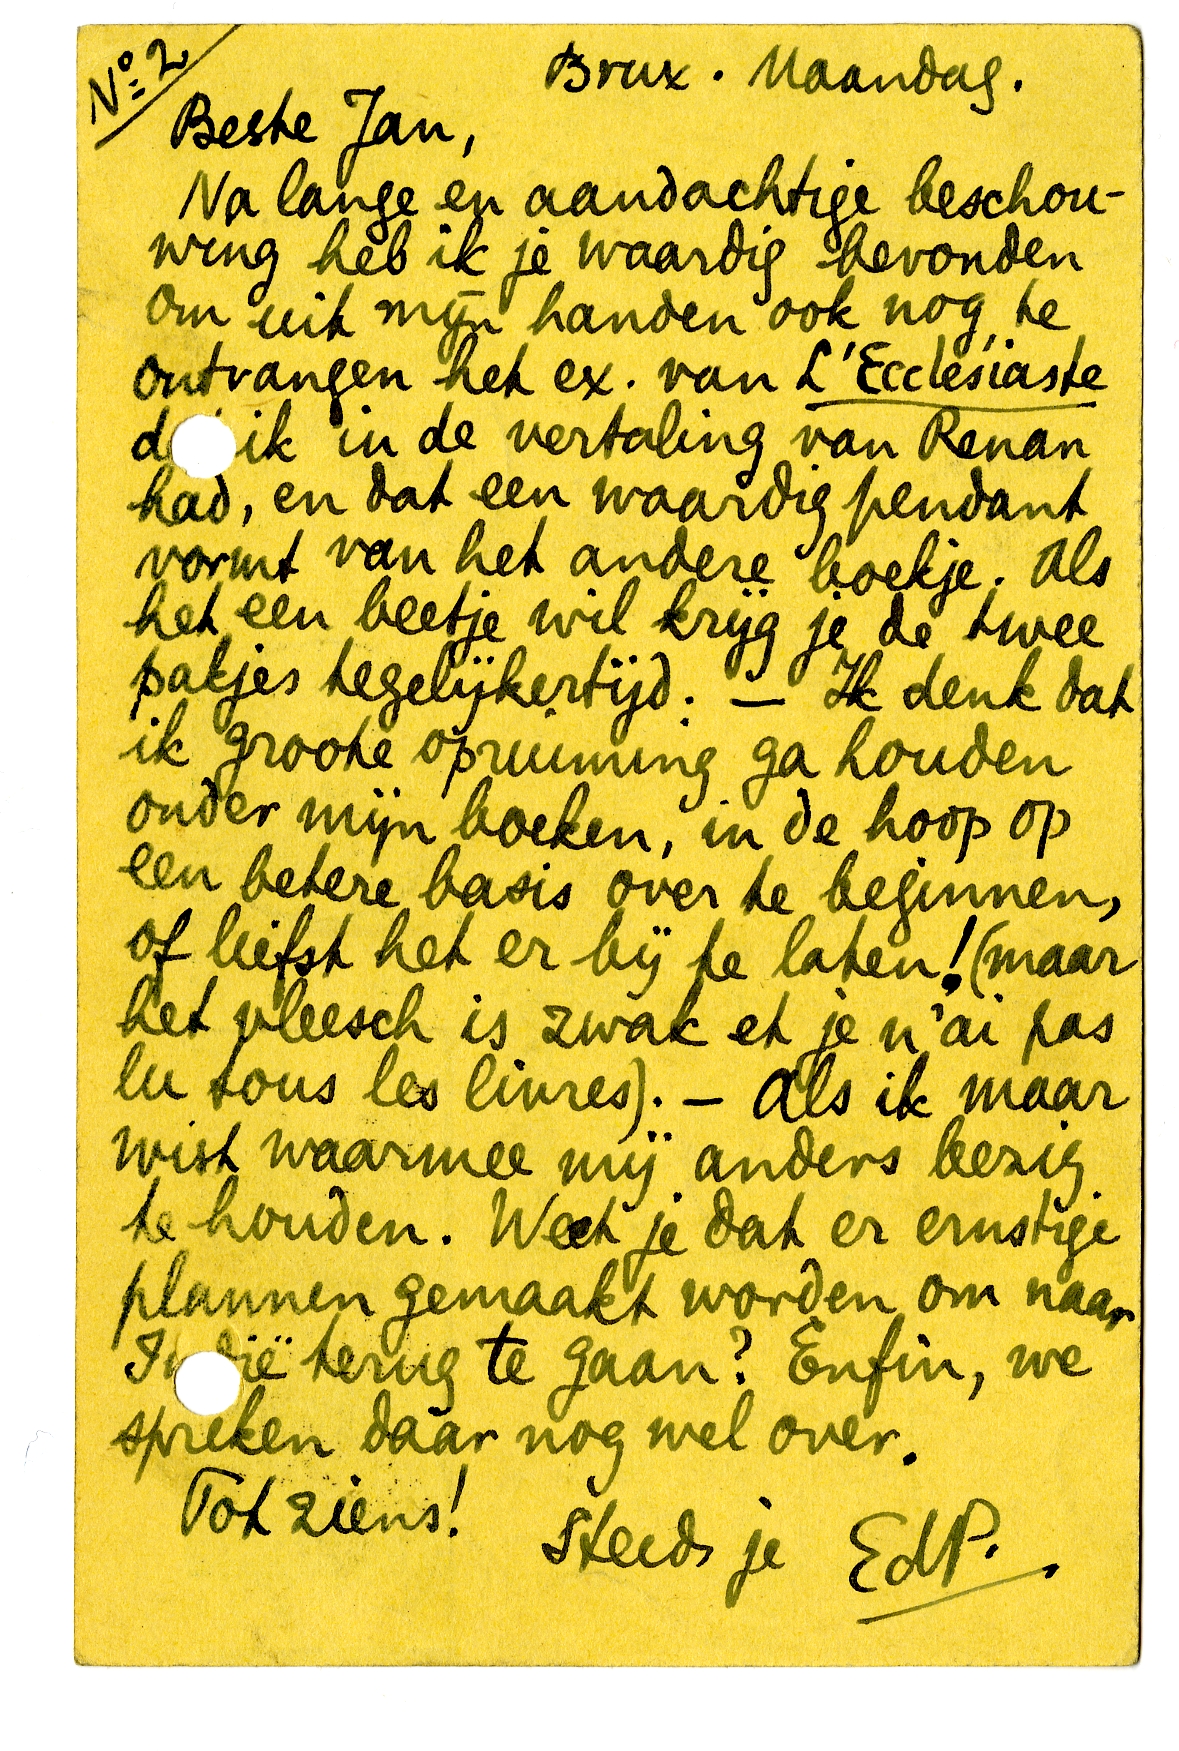 No: 2
Brux. Maandag.
Beste Jan,
Na lange en aandachtige beschou-
wing heb ik je waardig bevonden
om uit mijn handen ook nog te
ontvangen het ex. van L'Ecclésiaste
d ik in de vertaling van Renan
had, en dat een waardig pendant
vormt van het andere boekje. Als
het een beetje wil krijg je de twee
pakjes tegelijkertijd. — Ik denk dat
ik groote opruiming ga houden
onder mijn boeken, in de hoop op
een betere basis over te beginnen,
of liefst het er bij te laten! (maar
het vleesch is zwak et je n'ai pas
lu tous les livres). — Als ik maar
wist waarmee mij anders bezig
te houden. Weet je dat er ernstige
plannen gemaakt worden om naar
Indië terug te gaan? Enfin, we
spreken daar nog wel over.
Tot ziens!
Steeds je EdP.